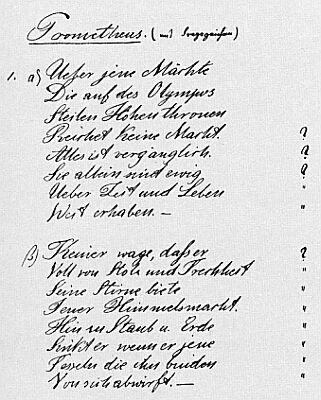 Prometheus. (mit Fragezeichen)
1. α) Ueber jene Mächte
Die auf des Olympos
Steilen Höhen thronen
Reichet keine Macht. ?
Alles ist vergänglich. ?
Sie allein sind ewig ?
Ueber Zeit und Leben "
Weit erhaben. — "
β) Keiner wage, dass er ?
Voll von Stolz und Frechheit "
Seine Stirne biete "
Jener Himmelsmacht. "
Hin zu Staub u. Erde "
Sinkt er wenn er jene "
Fesseln die ihn binden "
Von sich abwirft. — "